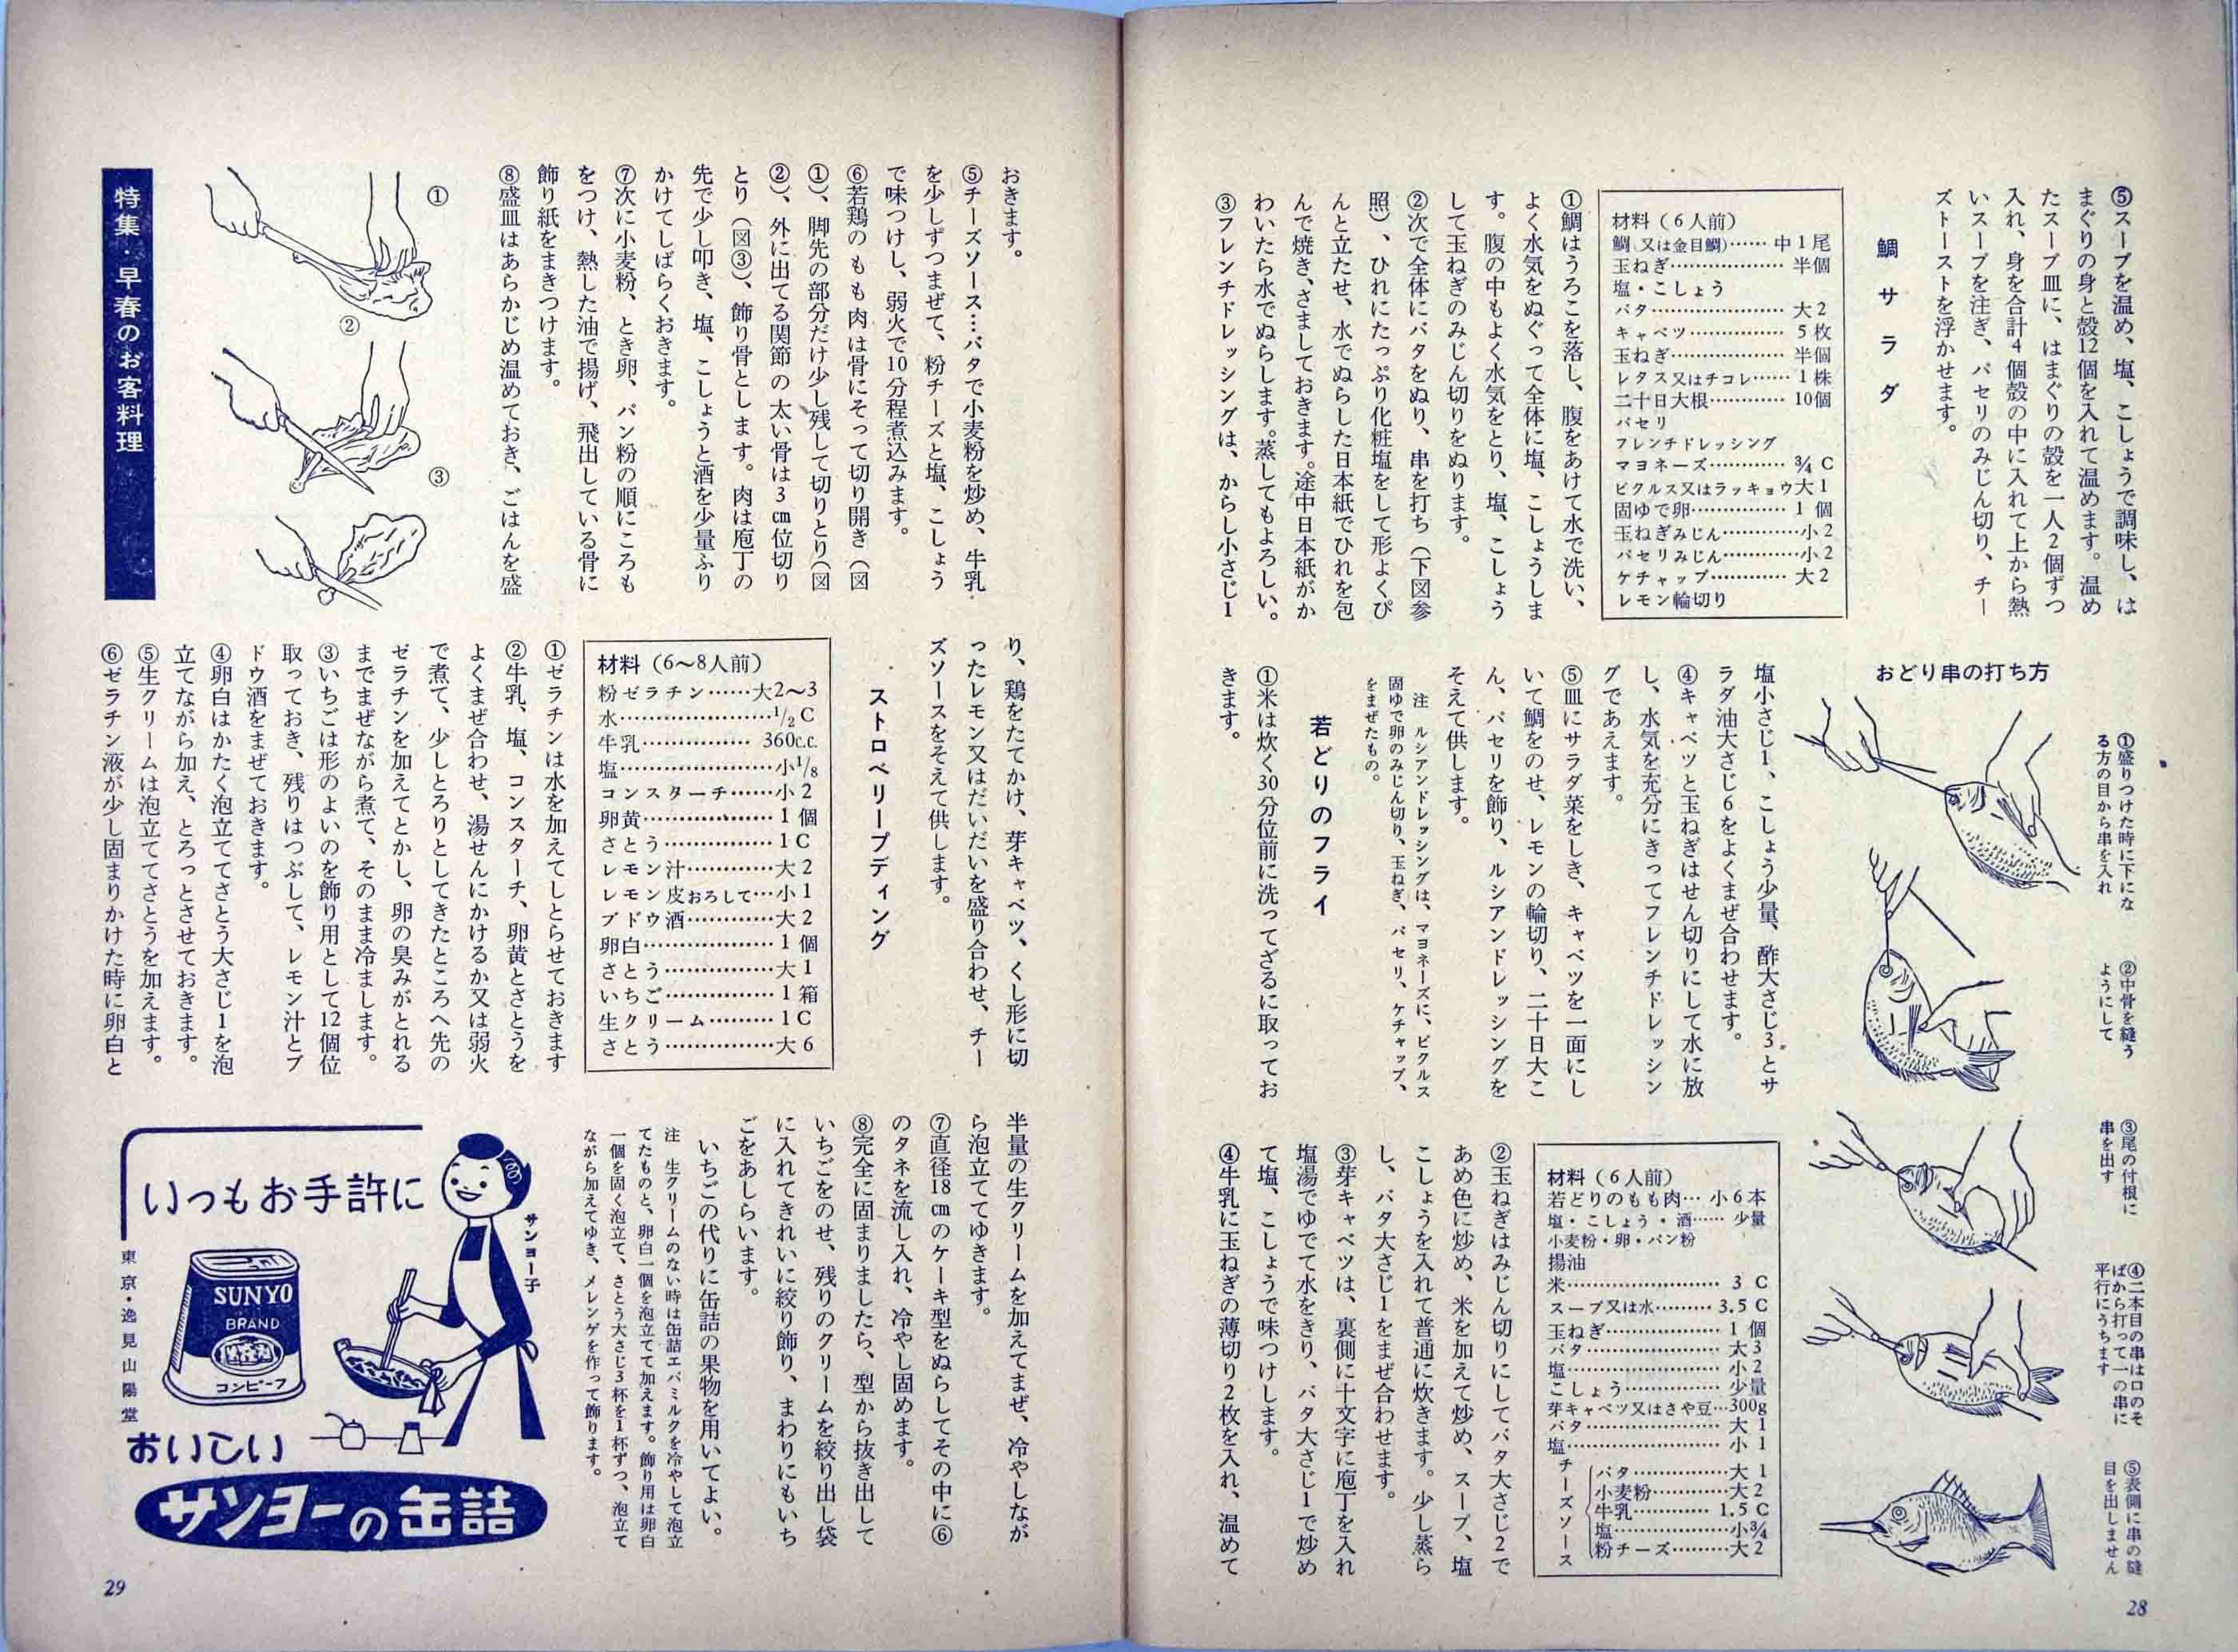 ⑤スープを温め、塩、こしょうで調味し、は
まぐりの身と殻12個を入れて温めます。温め
たスープ皿に、はまぐりの殻を一人2個ずつ
入れ、身を合計4個殻の中に入れて上から熱
いスープを注ぎ、パセリのみじん切り、チー
ズトーストを浮かせます。
鯛サラダ
材料(6人前)
鯛(又は金目鯛)……中1尾
玉ねぎ………………半個
塩・こしょう
バタ…………………大2
キャベツ……………5枚
玉ねぎ………………半個
レタス又はチコレ……1株
二十日大根…………10個
パセリ
フレンチドレッシング
マヨネーズ…………¾C
ピクルス又はラッキョウ大1
固ゆで卵……………1個
玉ねぎみじん…………小2
パセリみじん…………小2
ケチャップ…………大2
レモン輪切り
①鯛はうろこを落し、腹をあけて水で洗い、
よく水気をぬぐって全体に塩、こしょうしま
す。腹の中もよく水気をとり、塩、こしょう
して玉ねぎのみじん切りをぬります。
②次で全体にバタをぬり、串を打ち(下図参
照)、ひれにたっぷり化粧塩をして形よくぴ
んと立たせ、水でぬらした日本紙でひれを包
んで焼き、さましておきます。途中日本紙がか
わいたら水でぬらします。蒸してもよろしい。
③フレンチドレッシングは、からし小さじ1
おどり串の打ち方
①盛りつけた時に下にな
る方の目から串を入れ
②中骨を縫う
ようにして
③尾の付根に
串を出す
④二本目の串は口のそ
ばから打って一の串に
平行にうちます
⑤表側に串の縫
目を出しません
塩小さじ1、こしょう少量、酢大さじ3とサ
ラダ油大さじ6をよくまぜ合わせます。
④キャベツと玉ねぎはせん切りにして水に放
し、水気を充分にきってフレンチドレッシン
グであえます。
⑤皿にサラダ菜をしき、キャベツを一面にし
いて鯛をのせ、レモンの輪切り、二十日大こ
ん、パセリを飾り、ルシアンドレッシングを
そえて供します。
注 ルシアンドレッシングは、マヨネーズに、ピクルス
固ゆで卵のみじん切り、玉ねぎ、パセリ、ケチャップ、
をまぜたもの。
若どりのフライ
①米は炊く30分位前に洗ってざるに取ってお
きます。
材料(6人前)
若どりのもも肉…小6本
塩・こしょう・酒……少量
小麦粉・卵・パン粉
揚油
米……………………3C
スープ又は水………3.5C
玉ねぎ………………1個
バタ…………………大3
塩……………………小2
こしょう……………少量
芽キャベツ又はさや豆…300g
バタ…………………大1
塩……………………小1
チーズソース
バタ……………大1
小麦粉…………大2
牛乳…………1.5C
塩………………小¾
粉チーズ………大2
②玉ねぎはみじん切りにしてバタ大さじ2で
あめ色に炒め、米を加えて炒め、スープ、塩
こしょうを入れて普通に炊きます。少し蒸ら
し、バタ大さじ1をまぜ合わせます。
③芽キャベツは、裏側に十文字に庖丁を入れ
塩湯でゆでて水をきり、バタ大さじ1で炒め
て塩、こしょうで味つけします。
④牛乳に玉ねぎの薄切り2枚を入れ、温めて
28
おきます。
⑤チーズソース…バタで小麦粉を炒め、牛乳
を少しずつまぜて、粉チーズと塩、こしょう
で味つけし、弱火で10分程煮込みます。
⑥若鶏のもも肉は骨にそって切り開き(図
①)、脚先の部分だけ少し残して切りとり(図
②)、外に出てる関節の太い骨は3cm位切り
とり(図③)、飾り骨とします。肉は庖丁の
先で少し叩き、塩、こしょうと酒を少量ふり
かけてしばらくおきます。
⑦次に小麦粉、とき卵、パン粉の順にころも
をつけ、熱した油で揚げ、飛出している骨に
飾り紙をまきつけます。
⑧盛皿はあらかじめ温めておき、ごはんを盛
①
②
③
特集・早春のお客料理
り、鶏をたてかけ、芽キャベツ、くし形に切
ったレモン又はだいだいを盛り合わせ、チー
ズソースをそえて供します。
ストロベリープディング
材料(6〜8人前)
粉ゼラチン……大2〜3
水……………………½C
牛乳……………360c.c.
塩……………………小⅛
コンスターチ……小2
卵黄………………1個
さとう……………1C
レモン汁…………大2
レモン皮おろして…小1
ブドウ酒…………大2
卵白………………1個
さとう……………大1
いちご……………1箱
生クリーム………1C
さとう……………大6
①ゼラチンは水を加えてしとらせておきます
②牛乳、塩、コンスターチ、卵黄とさとうを
よくまぜ合わせ、湯せんにかけるか又は弱火
で煮て、少しとろりとしてきたところへ先の
ゼラチンを加えてとかし、卵の臭みがとれる
までまぜながら煮て、そのまま冷まします。
③いちごは形のよいのを飾り用として12個位
取っておき、残りはつぶして、レモン汁とブ
ドウ酒をまぜておきます。
④卵白はかたく泡立ててさとう大さじ1を泡
立てながら加え、とろっとさせておきます。
⑤生クリームは泡立ててさとうを加えます。
⑥ゼラチン液が少し固まりかけた時に卵白と
半量の生クリームを加えてまぜ、冷やしなが
ら泡立ててゆきます。
⑦直径18cmのケーキ型をぬらしてその中に⑥
のタネを流し入れ、冷やし固めます。
⑧完全に固まりましたら、型から抜き出して
いちごをのせ、残りのクリームを絞り出し袋
に入れてきれいに絞り飾り、まわりにもいち
ごをあしらいます。
いちごの代りに缶詰の果物を用いてよい。
注 生クリームのない時は缶詰エバミルクを冷やして泡立
てたものと、卵白一個を泡立てて加えます。飾り用は卵白
一個を固く泡立て、さとう大さじ3杯を1杯ずつ、泡立て
ながら加えてゆき、メレンゲを作って飾ります。
いつもお手許に
サンヨー子
SUNYO
BRAND
コンビーフ
東京・逸見山陽堂
おいしい
サンヨーの缶詰
29